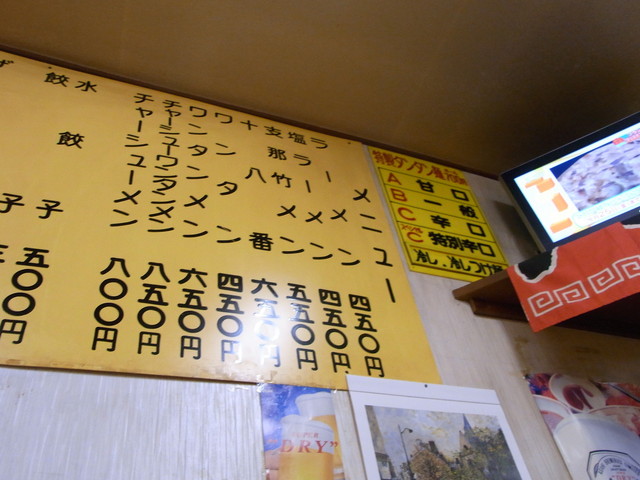 メニュー
ラーメン 四五〇円
塩ラーメン 四五〇円
支那竹メン 五五〇円
十八番 六五〇円
ワンタン 四五〇円
ワンタンメン 六五〇円
チャーシューワンタンメン 八五〇円
チャーシューメン 八〇〇円
水餃子 五〇〇円
餃子
特製タンタン麺
A 甘口
B 一般
C 辛口
C 特別辛口
"DRY"